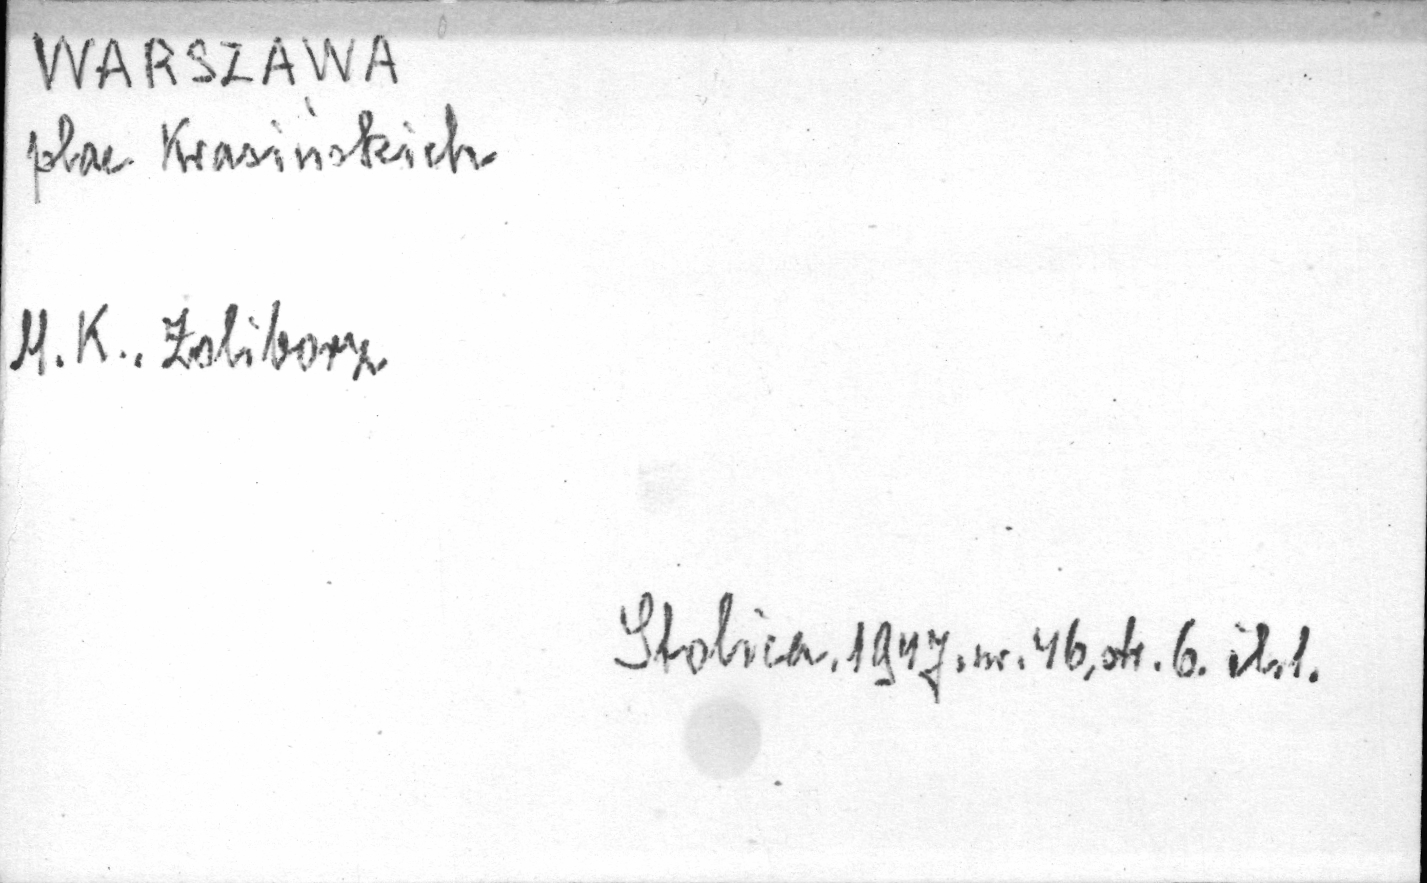 WARSZAWA
plac Krasińskich
M.K.. Żoliborz
Stolica. 1947. nr. 46, str. 6. il. 1.